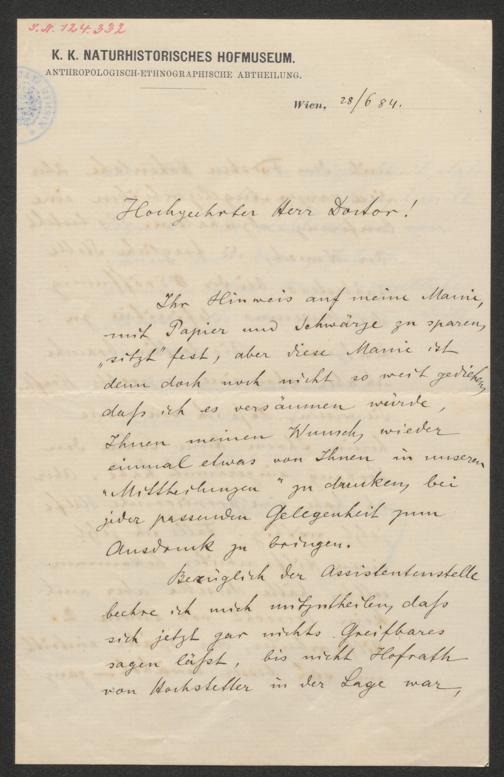 J.N. 124.332
K. K. NATURHISTORISCHES HOFMUSEUM.
ANTHROPOLOGISCH-ETHNOGRAPHISCHE ABTHEILUNG.
Wien, 28/6 84.
Hochgeehrter Herr Doctor!
Ihr Hinweis auf meine Manie,
mit Papier und Schwärze zu sparen,
„sitzt" fest, aber diese Manie ist
denn doch noch nicht so weit gediehen,
daß ich es versäumen würde,
Ihnen meinen Wunsch, wieder
einmal etwas von Ihnen in unseren
„Mittheilungen" zu drucken, bei
jeder passenden Gelegenheit zum
Ausdruck zu bringen.
Bezüglich der Assistentenstelle
beehre ich mich mitzutheilen, daß
sich jetzt gar nichts Greifbares
sagen läßt, bis nicht Hofrath
von Hochstetter in der Lage war,